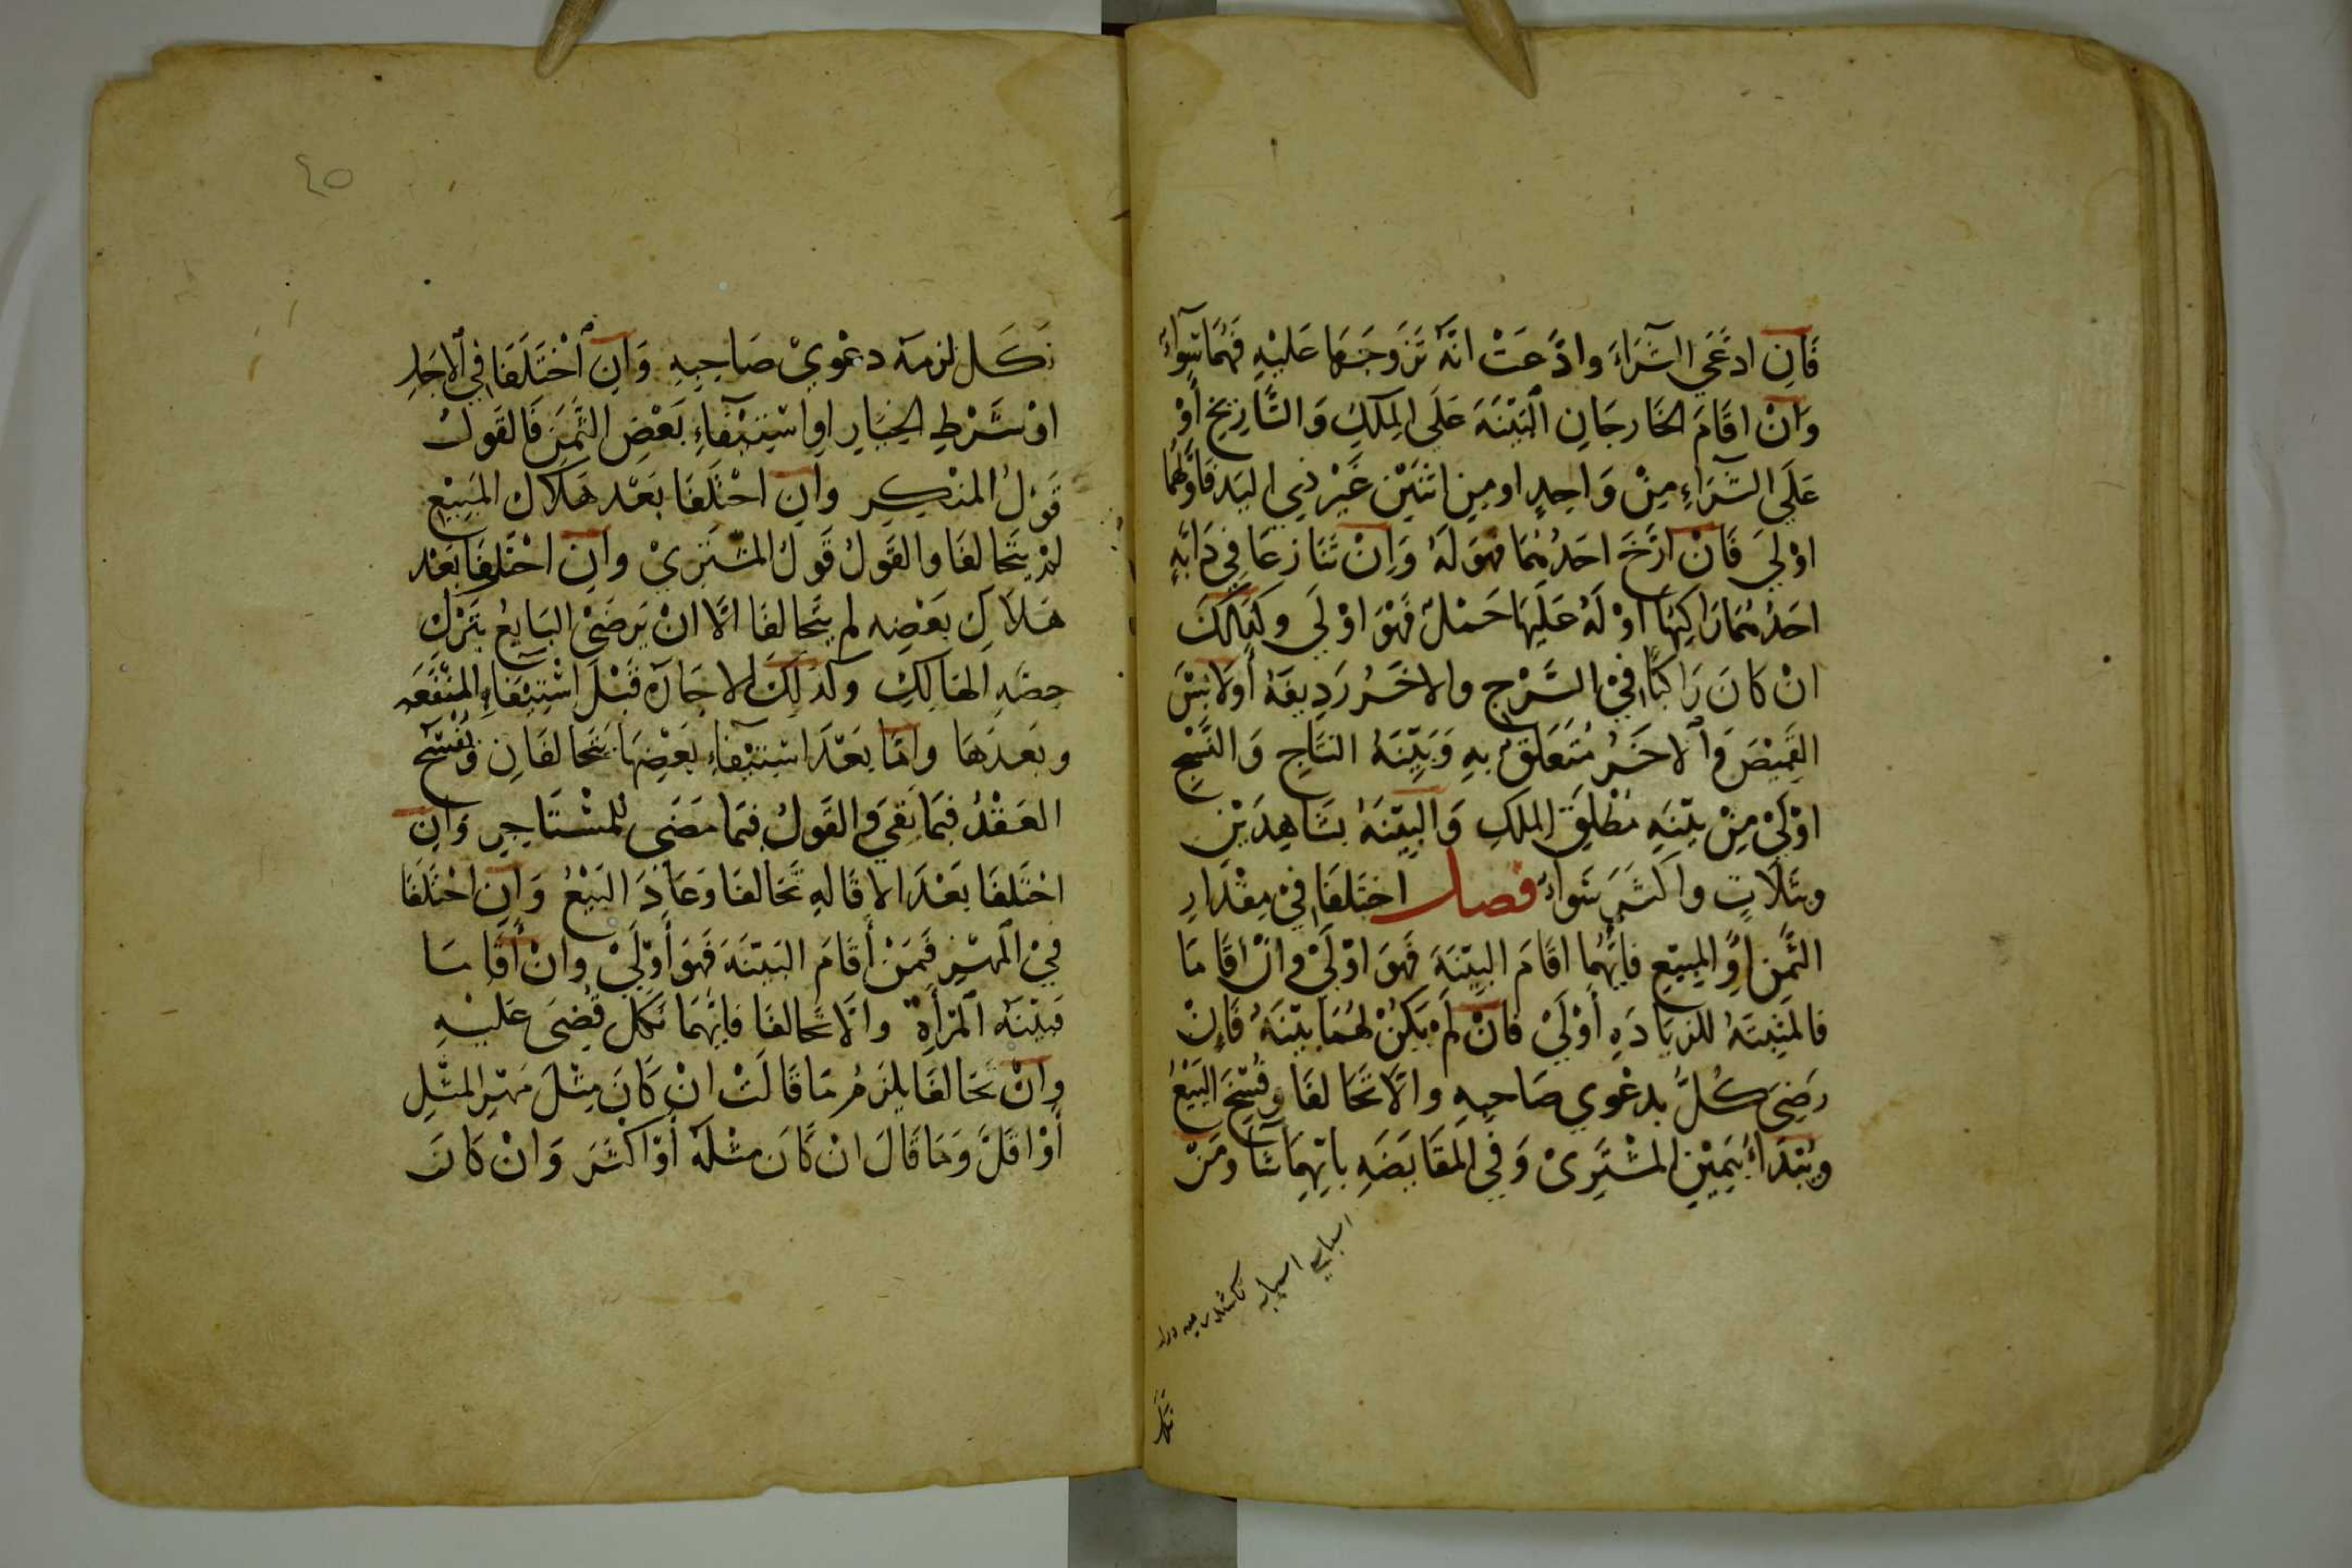 فَاِن ادَّعَي الشِّرَاءَ وادَّعَتْ انَّهُ تَزَوجَهَا عَليْهِ فَهُمَا سَوآءٌ
وَانْ اقَامَ الخَارجَانِ الْبَيّنَةَ عَلَي المِلكِ وَالتَّارِيخِ أَوْ
عَلَي الشِّرَاءِ مِنْ وَاحِدٍ او مِن اثنَيْن غَيْرِ ذِي اليَد فَاوَّلُهُمَا
اوْلَي فَانْ ارَّخَ احَدُهُمَا فهوَ لَهُ وَاِنْ تَنَازعَا فِي دَابَّةٍ
احَدُهُمَا رَاكِبُهَا اوْ لَهُ عَلَيْهَا حَمْلٌ فَهْوَ اوْلَي وكَذَلكَ
انْ كانَ رَاكبًا فيْ السَّرْجِ والاخَرُ رَدِيفَهُ أَولَابسَ
القَمِيْصَ وَالاخَرُ مُتَعَلقٌ بهِ وَبَيِّنَةُ النتَاجِ وَالنَّسْجِ
اوْلَيْ مِنْ بيّنَهِ مُطْلَقِ الملكِ وَالبَيّنَةُ بشَاهِدَيْنِ
وثَلَاثٍ واكثَرَ سَوَاءٌ فصل اختَلفَا فيْ مِقْدَارِ
الثَّمَنِ اوِ المبيْعِ فايُّهُمَا اقَامَ البيّنَةَ فَهوَ اوْلَيْ وانْ اقَامَا
فالمثبتَةُ للزيَادَهِ أَوْلَيْ فانْ لَمْ يَكنْ لهُمَا بيّنَةٌ فَإنْ
رَضِيَ كُلٌّ بدعْوي صَاحبِهِ والَّا تَحَالفَا وفُسِخَ البَيْعُ
ويُبْدَاءُ بيَميْنِ المشْتَرِيْ وَفي المقَايَضَهِ بايِّهِمَا شَآ ومَنْ
٤٥
نَكَل لزمهُ دعْويْ صَاحِبِهِ وَاِن اخْتَلَفَا فِي الاجَلِ
اوْ شَرْطِ الخِيَارِ اوِ اسْتِيْفَآءِ بَعْضِ الثَّمَنِ فَالقَولُ
قَوْلُ المنْكِرِ وان اخْتَلَفَا بَعْد هَلاكِ المَبِيْعِ
لمْ يتَحَالفَا والقَوْلُ قَوْلُ المشْتَرِيْ وان اخْتَلفَا بَعْد
هَلَاكِ بَعْضِه لم يتَحَالفَا الَّا انْ يَرضَيْ البَايعُ بتَرْكِ
حصّهِ الهَالِكِ وكَذَلكَ الاجَارَه قبْلَ اسْتِيْفَاءِ المنْفَعَه
وبَعدَهَا وامَّا بَعْدَ اسْتِيْفَآءِ بَعْضِهَا يتَحَالفَانِ وَيُفْسَخُ
العَقْدُ فيمَا بَقي والقَولُ فيمَا مَضَي للمُسْتَاجِرِ وَاِن
اخْتَلفَا بَعْدَ الاقَالهِ تَحَالفَا وَعَادَ البَيْعُ وَاِن اخْتَلَفَا
فيْ المَهْرِ فَمَنْ أَقَامَ البَيّنَةَ فَهوَ أَوْلَيْ وَانْ أَقَامَا
فبيّنَهُ المَرْأَةِ والَّا تحَالفَا فايّهُمَا نَكَل قُضِيَ عَليْهِ
وانْ تَحَالفَا يلزَمُ مَا قَالَتْ انْ كَانَ مِثْلَ مَهْرِ المثْلِ
أَوْ اقَلَّ وَمَا قَالَ انْ كَانَ مثْلَهُ أَوْ اكثَرَ وَانْ كَانَ